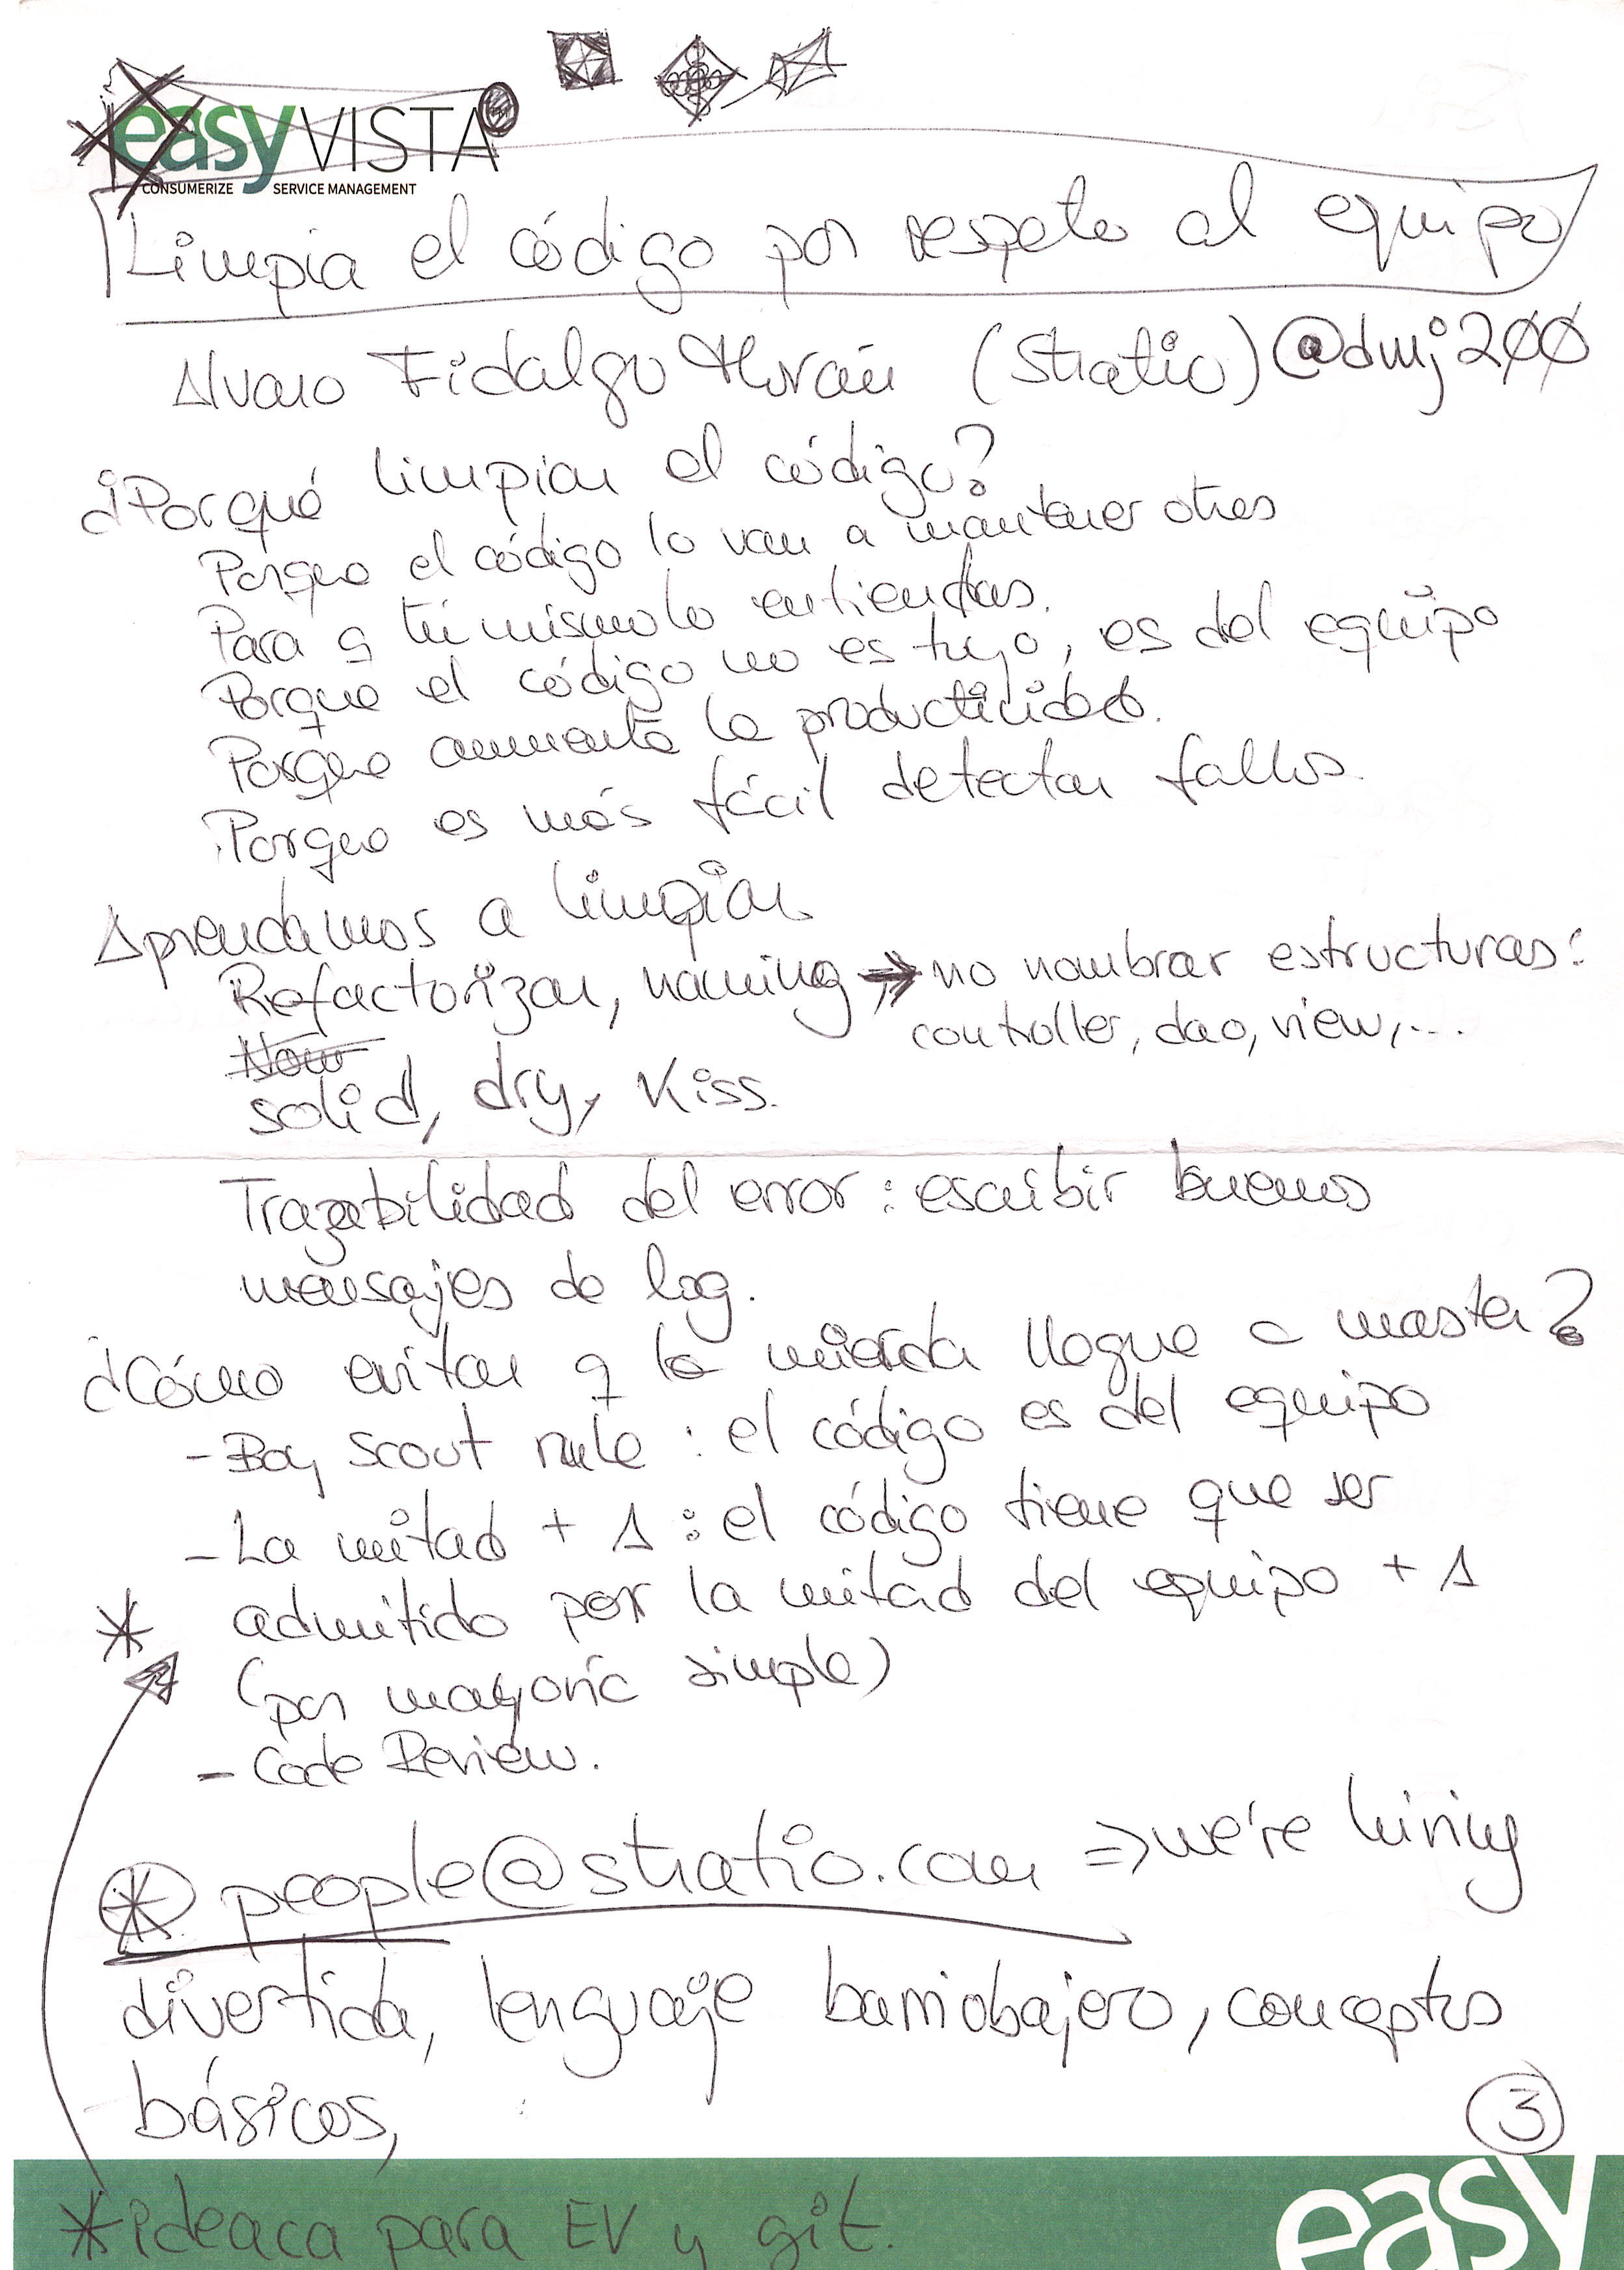 easyVISTA
CONSUMERIZE SERVICE MANAGEMENT
Limpia el código por respeto al equipo
Alvaro Fidalgo Morán (Stratio) @dmj200
¿Porqué limpiar el código?
Porque el código lo van a mantener otros
Para q tú mismo lo entiendas.
Porque el código no es tuyo, es del equipo
Porque aumenta la productividad.
Porque es más fácil detectar fallos.
Aprendamos a limpiar
Refactorizar, naming → no nombrar estructuras:
controller, dao, view, ...
Now
solid, dry, Kiss.
Trazabilidad del error: escribir buenos
mensajes de log.
¿Cómo evitar q la mierda llegue a master?
- Boy Scout rule : el código es del equipo
- La mitad + 1 : el código tiene que ser
* admitido por la mitad del equipo + 1
(por mayoría simple)
- Code Review.
* people@stratio.com => we're hiring
divertida, lenguaje barriobajero, conceptos
básicos,
3
* ideaca para EV y git.
easy